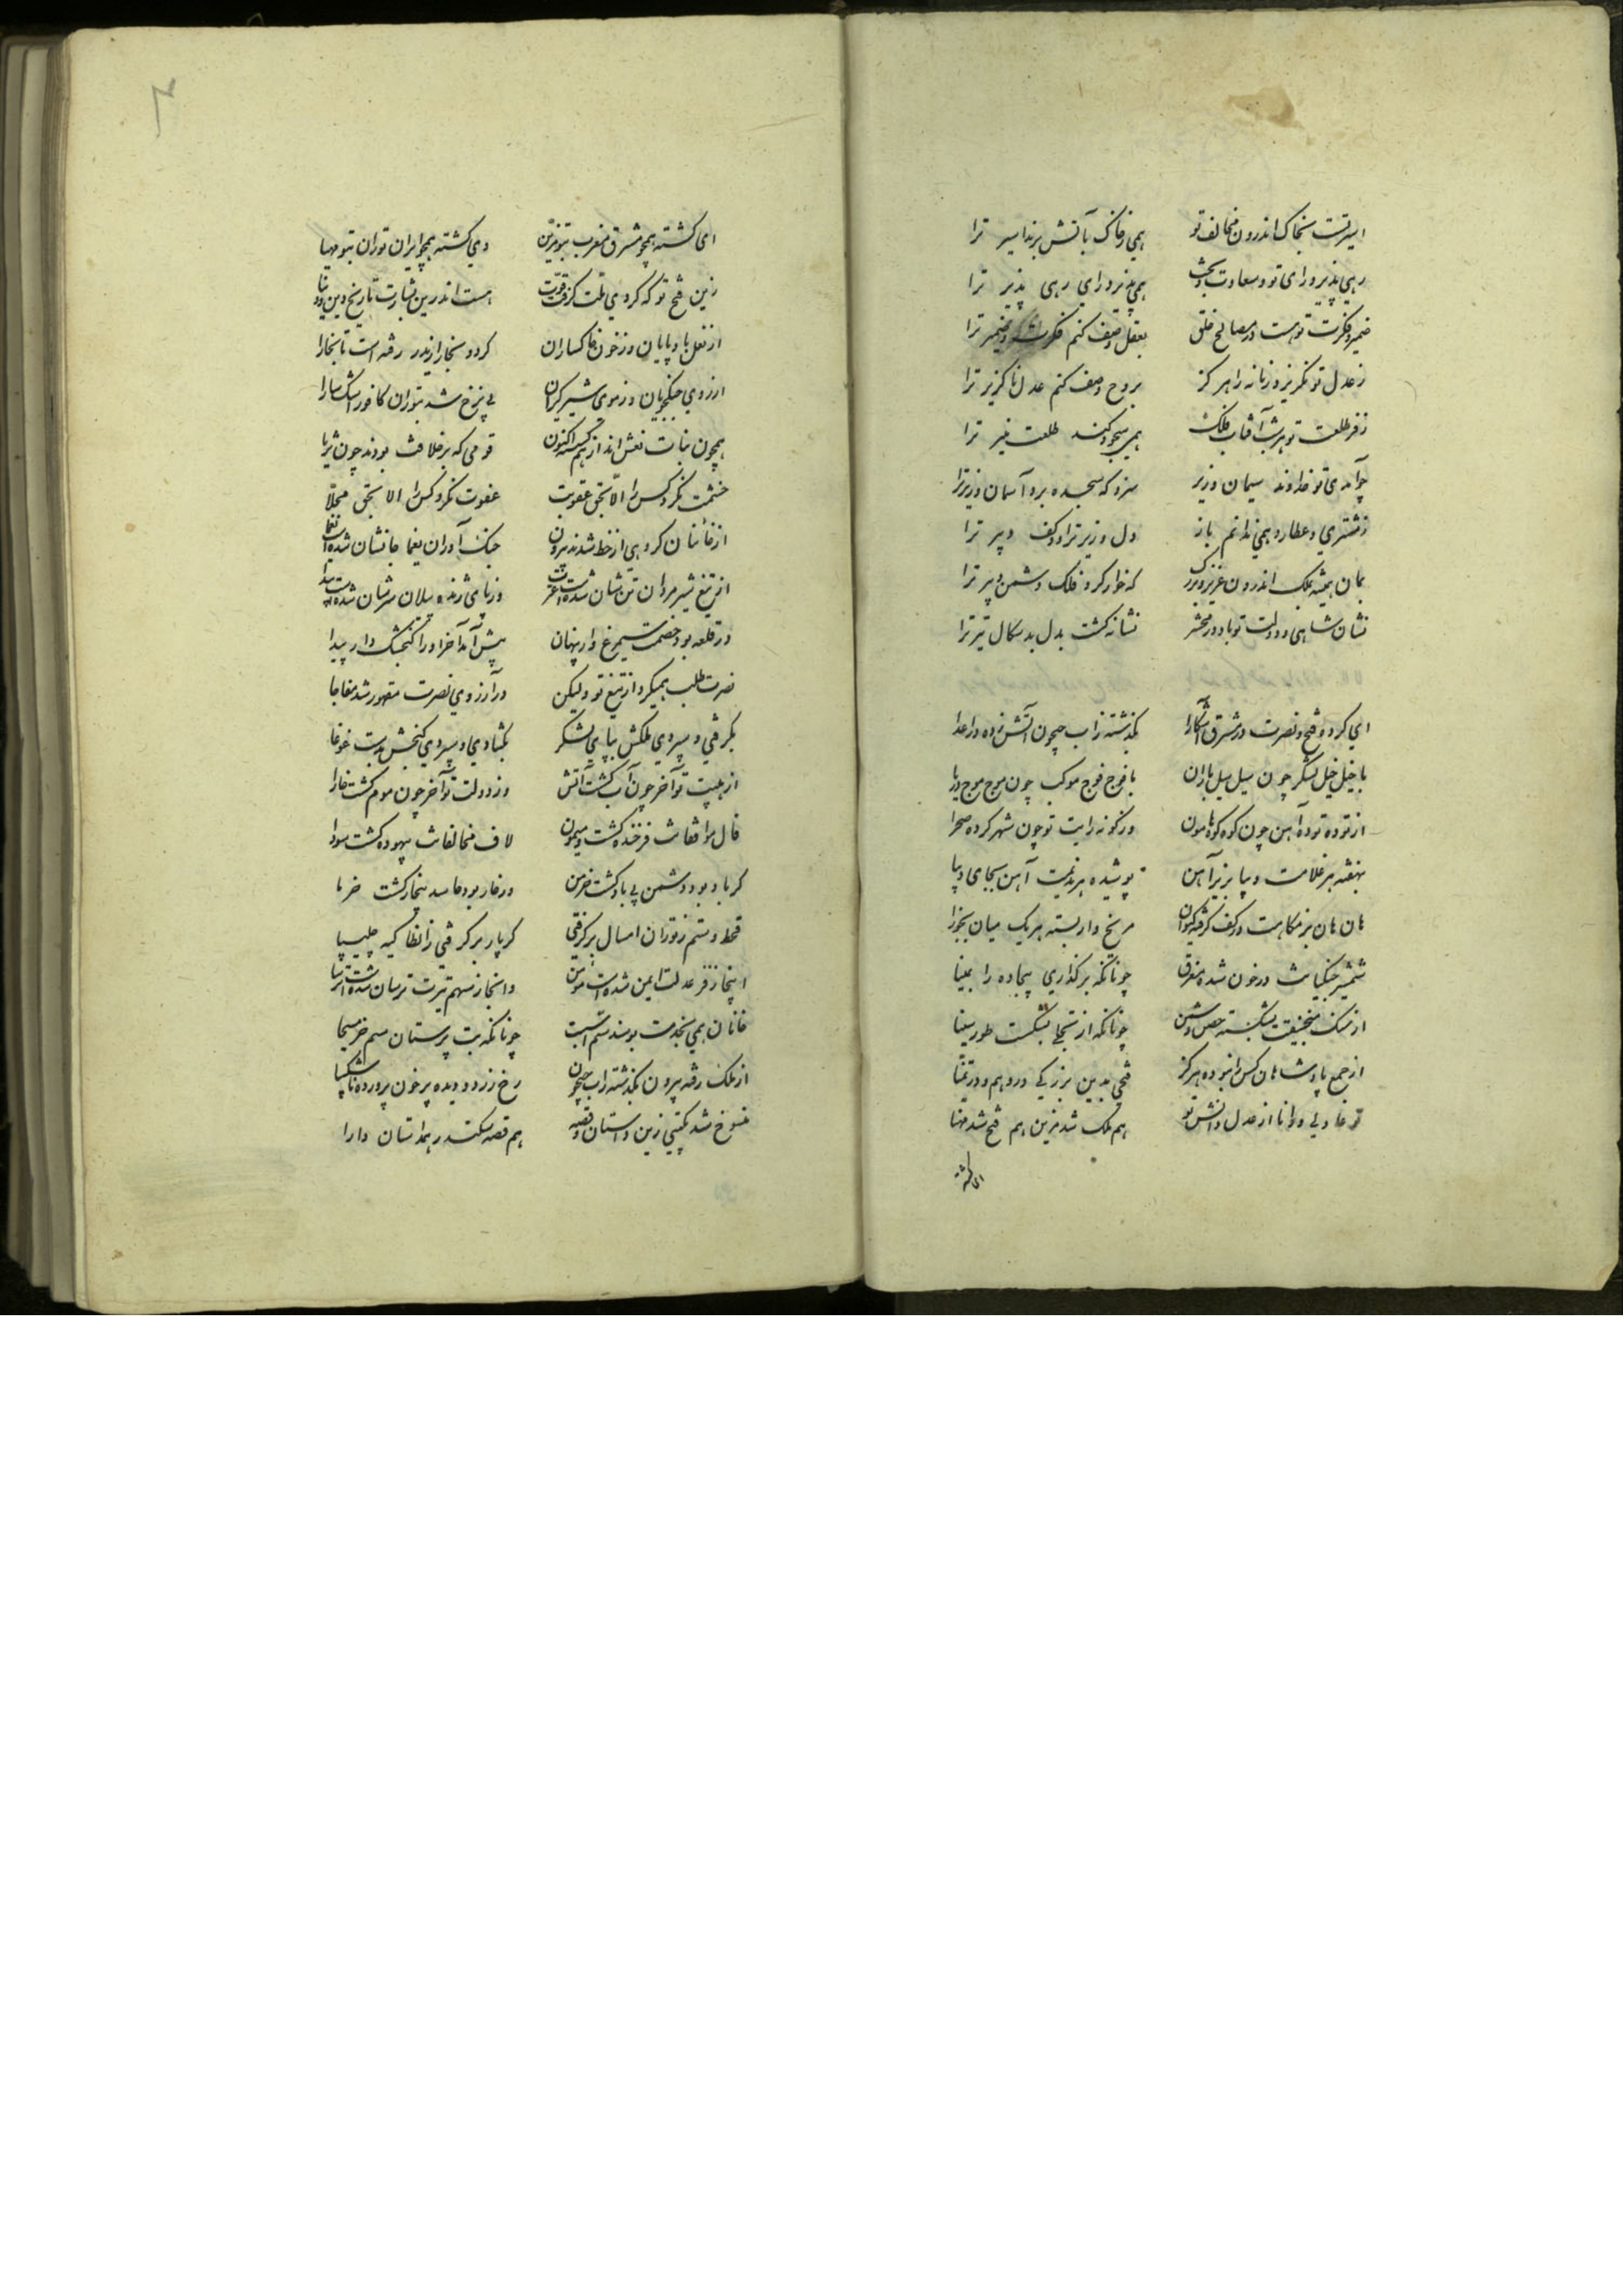 اسیر تست بخاک اندرون مخالف تو همی ز خاک بآتش برند اسیر ترا
رهی پذیر و رای تو و سعادت بخت همی پذیرد رای رهی پذیر ترا
ضمیر و فکرت تو هست در مصالح خلق بعقل وصف کنم فکرت و ضمیر ترا
ز عدل تو نگریزد زمانه را هرگز بروح وصف کنم عدل ناگزیر ترا
ز فر طلعت تو هر شب آفتاب فلک همی سجود کند طلعت منیر ترا
چو آمدی تو خداوند سلیمان وزیر سزد که سجده برد آسمان وزیر ترا
ز مشتری و عطارد همی ندانم باز دل وزیر ترا و کف دبیر ترا
بمان همیشه بملک اندرون عزیز و بزرگ که خوار کرد فلک دشمن و پیر ترا
نشان شاهی و دولت تو باد در محشر نشانه گشت بدل بدسگال تیر ترا
ای کرده فتح و نصرت در مشرق آشکارا بگذشته ز آب جیحون آتش زده در اعدا
با خیل خیل لشکر چون سیل سیل باران با فوج فوج موکب چون موج موج دریا
از توده توده آهن چون کوه کوه هامون وز گونه رایت تو چون شهر کرده صحرا
نهفته هر غلامت دیبا بزیر آهن پوشیده هر ندیمت آهن بجای دیبا
هان هان بزمگاهت در کف گرفته کیوان مریخ وار بسته هر یک میان بجوزا
شمشیر جنگیانت در خون شده مغرق چونانکه برگذاری بیجاده را بمینا
از سنگ منجنیقت بشکسته حصن دشمن چونانکه از تجلی بشکست طور سینا
از جمع پادشاهان کس را نبوده هرگز فتحی بدین بزرگی در وهم و در تمنا
تو عادلی و دانا از عدل و دانش تو هم ملک شد مزین هم فتح شد مهنا
ای گشته
ای گشته همچو مشرق مغرب بتو مزین وی گشته همچو ایران توران بتو مهیا
زین فتح تو که کردی ملت گرفت قوت هست اندرین بشارت تاریخ دین و دنیا
از نعل بادپایان وز خون خاکساران کرد و بخار از یدر رفته است تا بخارا
از روی جنگجویان وز موی شیرگیران بی نرخ شد بتوران کافور و مشک سارا
همچون بنات نعش اند از هم گسسته اکنون قومی که بر خلافت بودند چون ثریا
خشمت نکرد کس را الا بحق عقوبت عفوت نکرد کس را الا بحق محلا
از خانیان گروهی از خط شدند بیرون جنگ آوران یغما جانشان شده است یغما
از تیغ شیر مردان تنشان شده است وز پای ژنده پیلان سرشان شده است
در قلعه بود خصمت سیمرغ وار پنهان پیش آمد آخر او را گنجشک وار پیدا
نصرت طلب همیکرد از تیغ تو ولیکن در آرزوی نصرت مقهور شد مفاجا
بگرفتی و سپردی ملکش بپای لشکر بگشادی و سپردی گنجش بدست غوغا
از هیبت تو آخر چون آب گشت آتش وز دولت تو آخر چون موم گشت خارا
فال موافقانت فرخنده گشت و میمون لاف مخالفانت بیهوده گشت و سودا
گر باد بود دشمن بی باد گشت خرمن ور خار بود حاسد بیخار گشت خرما
قحط و ستم ز توران امسال برگرفتی گر پار برگرفتی ز انطاکیه چلیپا
اینجا ز فر عدلت ایمن شده است مومن وانجا ز سهم تیرت ترسان شده است ترسا
خانان همی بخدمت بوسند سم اسبت چونانکه بت پرستان سم خر مسیحا
از ملک رفته بیرون بگذشته ز آب جیحون رخ زرد و دیده پر خون پر درد و ناشکیبا
منسوخ شد بگیتی زین داستان و قصه هم قصه سکندر هم داستان دارا